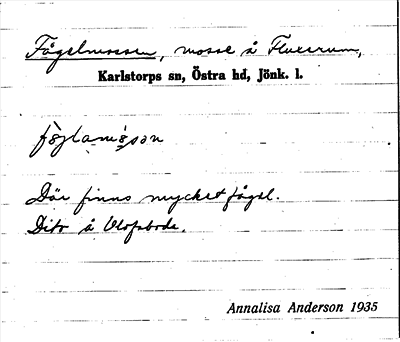 Fågelmossen, mosse å Fluxerum,
Karlstorps sn, Östra hd, Jönk. l.
Där finns mycket fågel.
Dito å Olofsbode.
Annalisa Anderson 1935